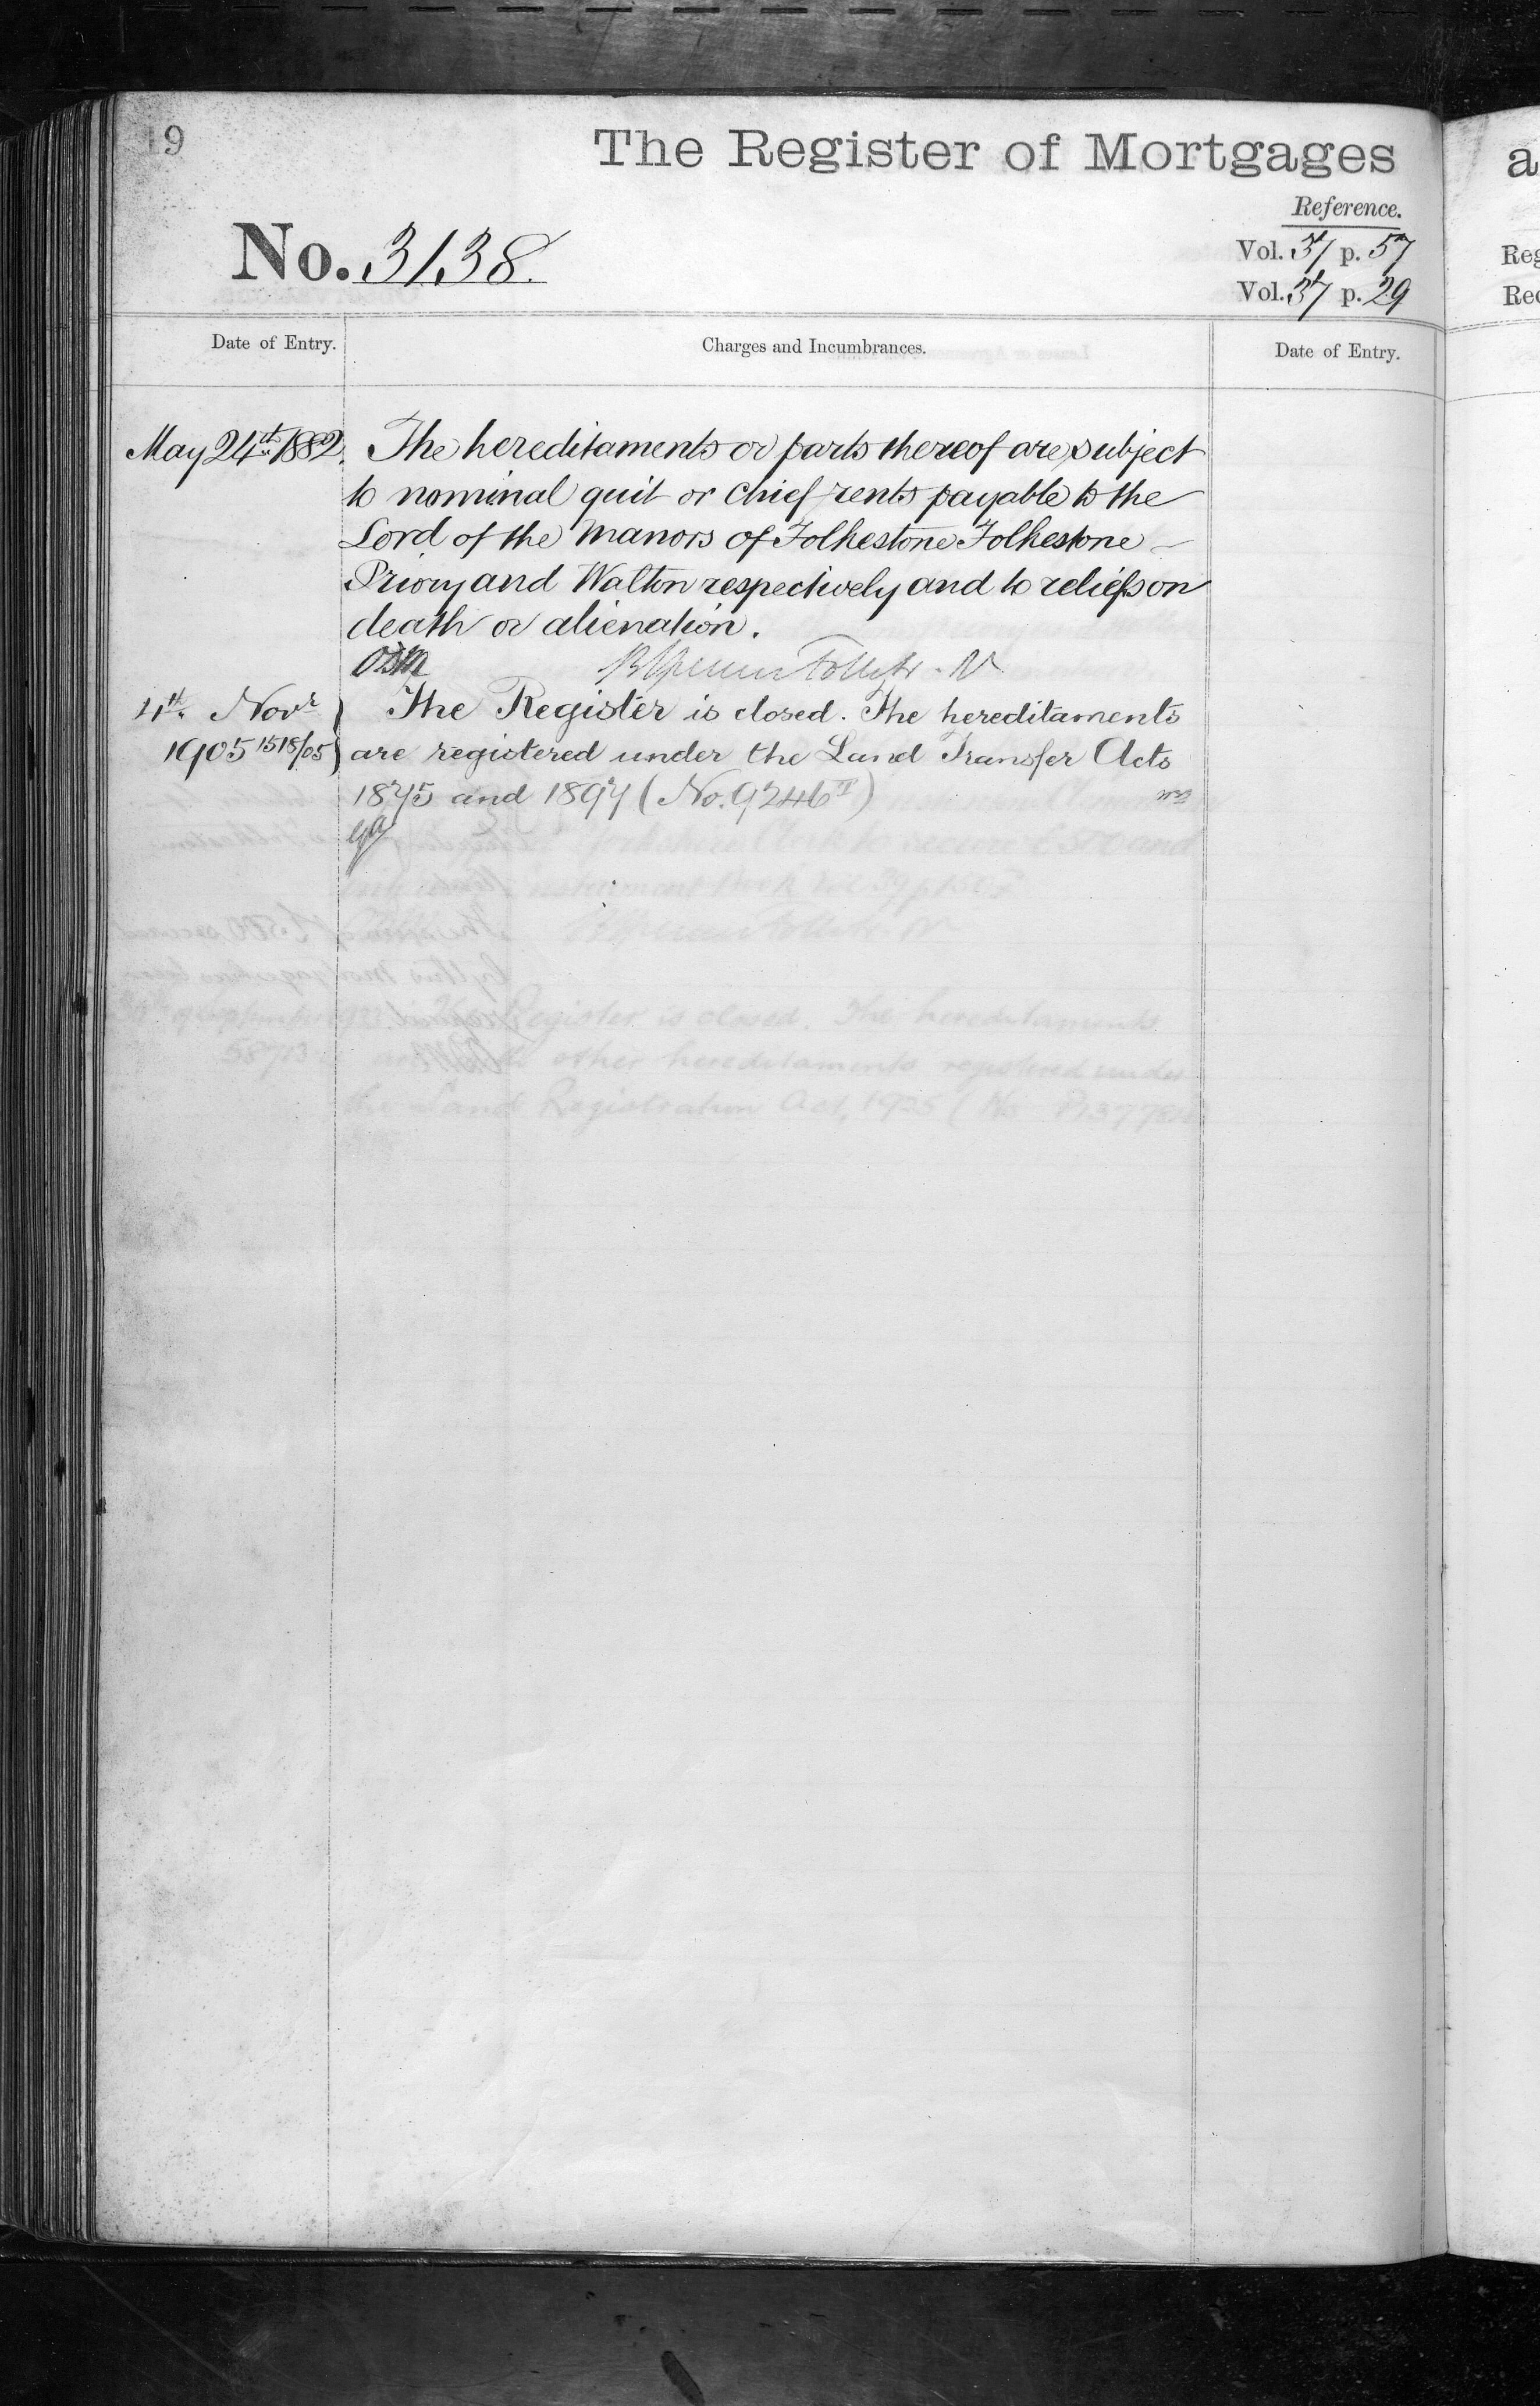 19
The Register of Mortgages
a
Reference.
No. 3138.
Vol. 37 p. 57
Reg
Vol. 37 p. 29
Rec
Date of Entry.
Charges and Incumbrances.
Date of Entry.
May 24th 1882. The hereditaments or parts thereof are subject
to nominal quit or chief rents payable to the
Lord of the Manors of Folkestone Folkestone
Priory and Walton respectively and to reliefs on
death or alienation.
Follett
4th Novr The Register is closed. The hereditaments
1905 1518/05 are registered under the Land Transfer Acts
1875 and 1897 (No. 9246)
Register is closed. The hereditaments
other hereditaments registered under
the Land Registration Act, 1925 (No